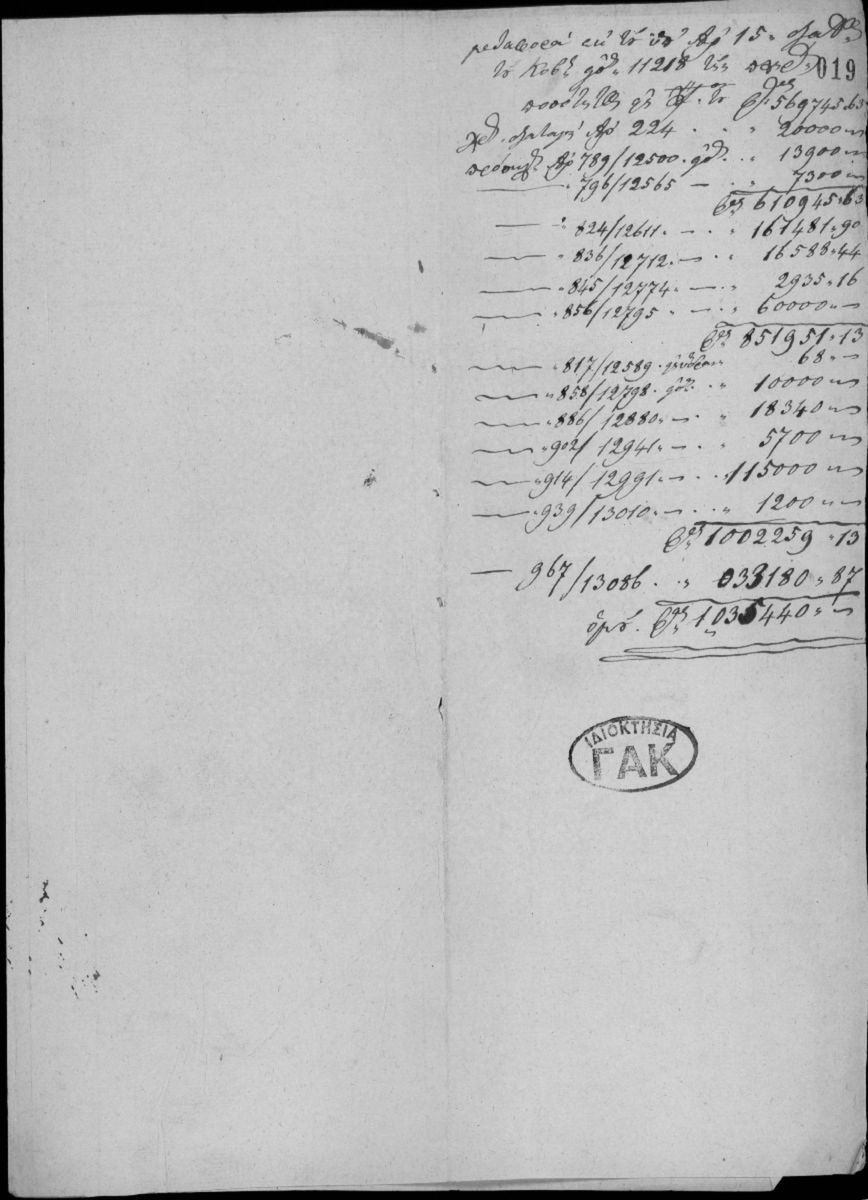 μεταφορά εκ του υπ' Αρ 15
019
του Κυβ 11218 της
ποσότητος 569745.63
διαταγή Αρ 224 . . " 20000
Αρ 789/12500 . . " 13900
" 796/12565 — . " 7300
610945.63
" 824/12611 . — . " 167481.90
" 836/12712 . — . " 16588.44
" 845/12774 " — . " 2935.16
" 856/12795 " — . " 60000
851951.13
" 817/12589 . 68
" 858/12798 . . " 10000
" 886/12880 " — . " 18340
" 902/12941 " — . " 5700
" 914/12991 " — . . 115000
" 939/13010 " — . . " 1200
1002259.13
— 967/13086 . . " 033180.87
ὁμού . 1035440
ΙΔΙΟΚΤΗΣΙΑ
ΓΑΚ